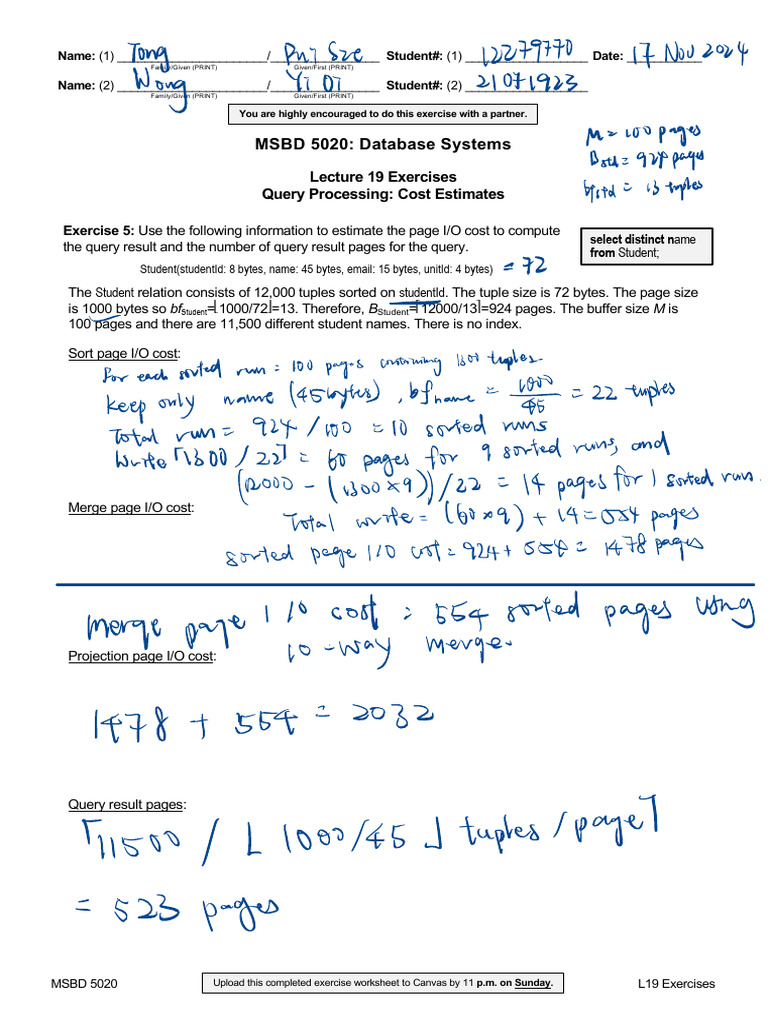 Name: (1) Tong / Pui Sze Student#: (1) 12279770 Date: 17 Nov 2024
Family/Given (PRINT) Given/First (PRINT)
Name: (2) Wong / Yi Student#: (2) 21071923
Family/Given (PRINT) Given/First (PRINT)
You are highly encouraged to do this exercise with a partner.
MSBD 5020: Database Systems
M = 100 pages
Bstd = 924 pages
bfstd = 13 tuples
Lecture 19 Exercises
Query Processing: Cost Estimates
Exercise 5: Use the following information to estimate the page I/O cost to compute
the query result and the number of query result pages for the query.
select distinct name
from Student;
Student(studentId: 8 bytes, name: 45 bytes, email: 15 bytes, unitId: 4 bytes) = 72
The Student relation consists of 12,000 tuples sorted on studentId. The tuple size is 72 bytes. The page size
is 1000 bytes so bfStudent=⌊1000/72⌋=13. Therefore, BStudent=⌈12000/13⌉=924 pages. The buffer size M is
100 pages and there are 11,500 different student names. There is no index.
Sort page I/O cost:
For each sorted run = 100 pages containing 1300 tuples
Keep only name (45 bytes), bfname = 1000/45 = 22 tuples
Total run = 924 / 100 = 10 sorted runs
Write ⌈1300 / 22⌉ = 60 pages for 9 sorted runs, and
(12000 - (1300 × 9)) / 22 = 14 pages for 1 sorted run.
Merge page I/O cost:
Total write = (60 × 9) + 14 = 554 pages
sorted page I/O cost = 924 + 554 = 1478 pages
Merge page I/O cost = 554 sorted pages using
10-way merge.
Projection page I/O cost:
1478 + 554 = 2032
Query result pages:
⌈11500 / ⌊1000/45⌋ tuples/page⌉
= 523 pages
MSBD 5020
Upload this completed exercise worksheet to Canvas by 11 p.m. on Sunday.
L19 Exercises